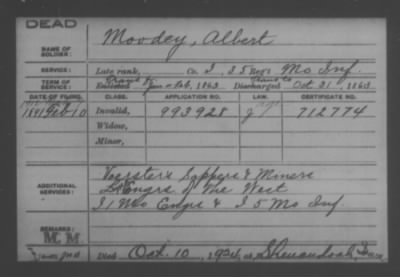 DEAD
NAME OF SOLDIER: Moodey, Albert
SERVICE: Late rank, Co. I, 35 Reg't Mo Inf.
TERM OF SERVICE: Enlisted 1863 Discharged Oct 31, 1863
DATE OF FILING. CLASS. APPLICATION NO. LAW. CERTIFICATE NO.
Feb 10 Invalid, 993928 712774
Widow,
Minor,
ADDITIONAL SERVICES: Sappers & Miners
Engrs of The West
I 1 Mo Engrs & I 5 Mo Inf.
REMARKS:
M M
Died Oct. 10, 1924, at Shenandoah, Iowa